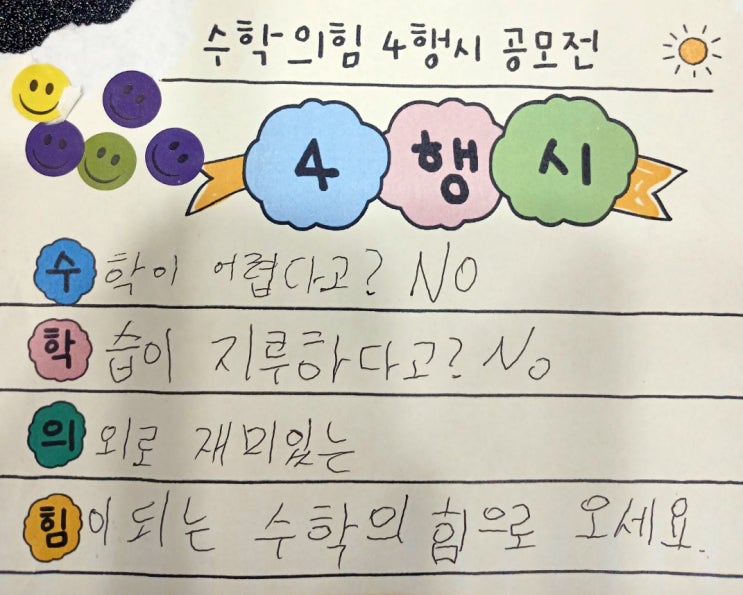 수학의힘 4행시 공모전
4행시
수학이 어렵다고? NO
학습이 지루하다고? No
의외로 재미있는
힘이 되는 수학의 힘으로 오세요.